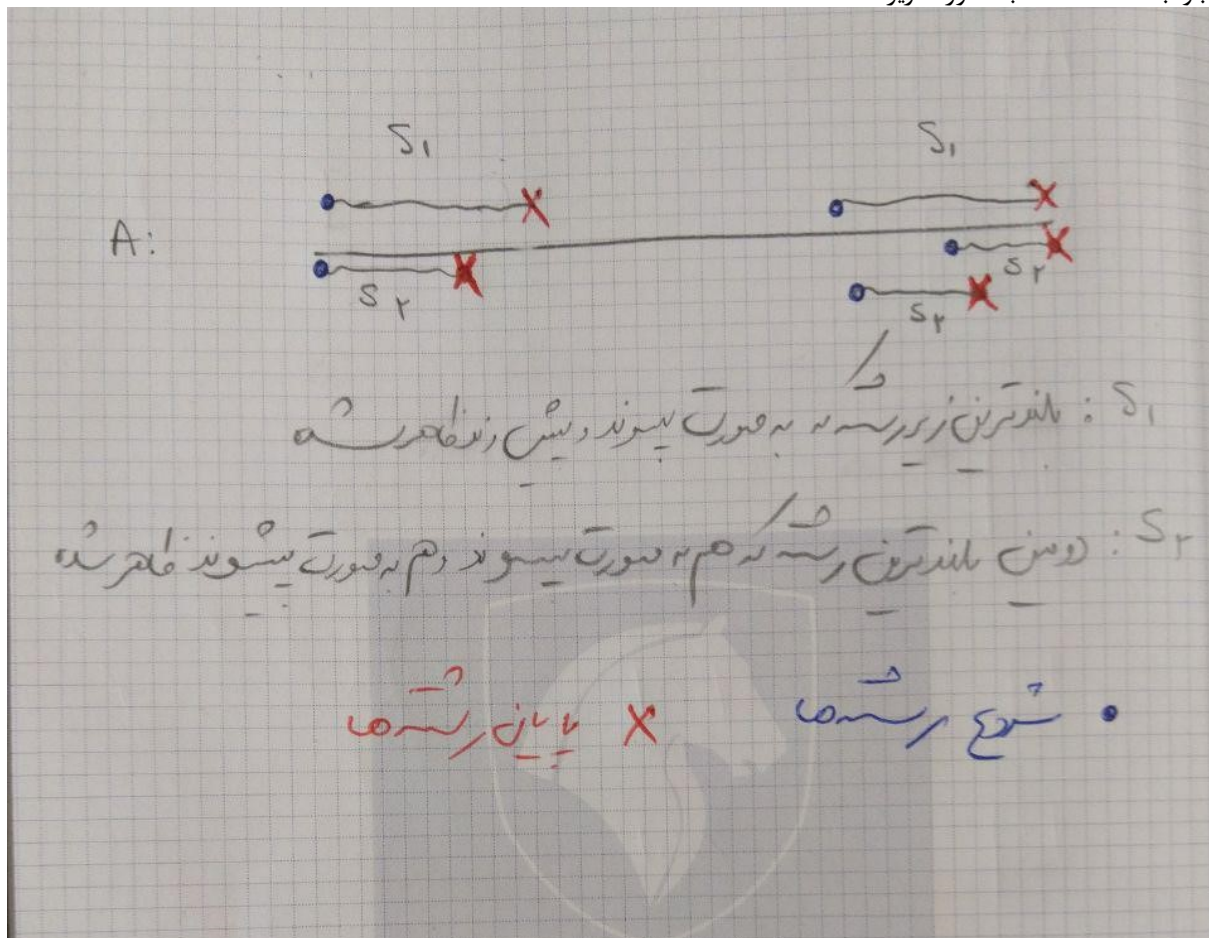 S۱ S۱
A:
S۲ S۲
S۲
S۱ : بلندترین زیررشته که به صورت پسوند و پیش‌وند ظاهر شده
S۲ : دومین بلندترین رشته که هم به صورت پسوند و هم به صورت پیشوند ظاهر شده
• شروع رشته‌ها X پایان رشته‌ها